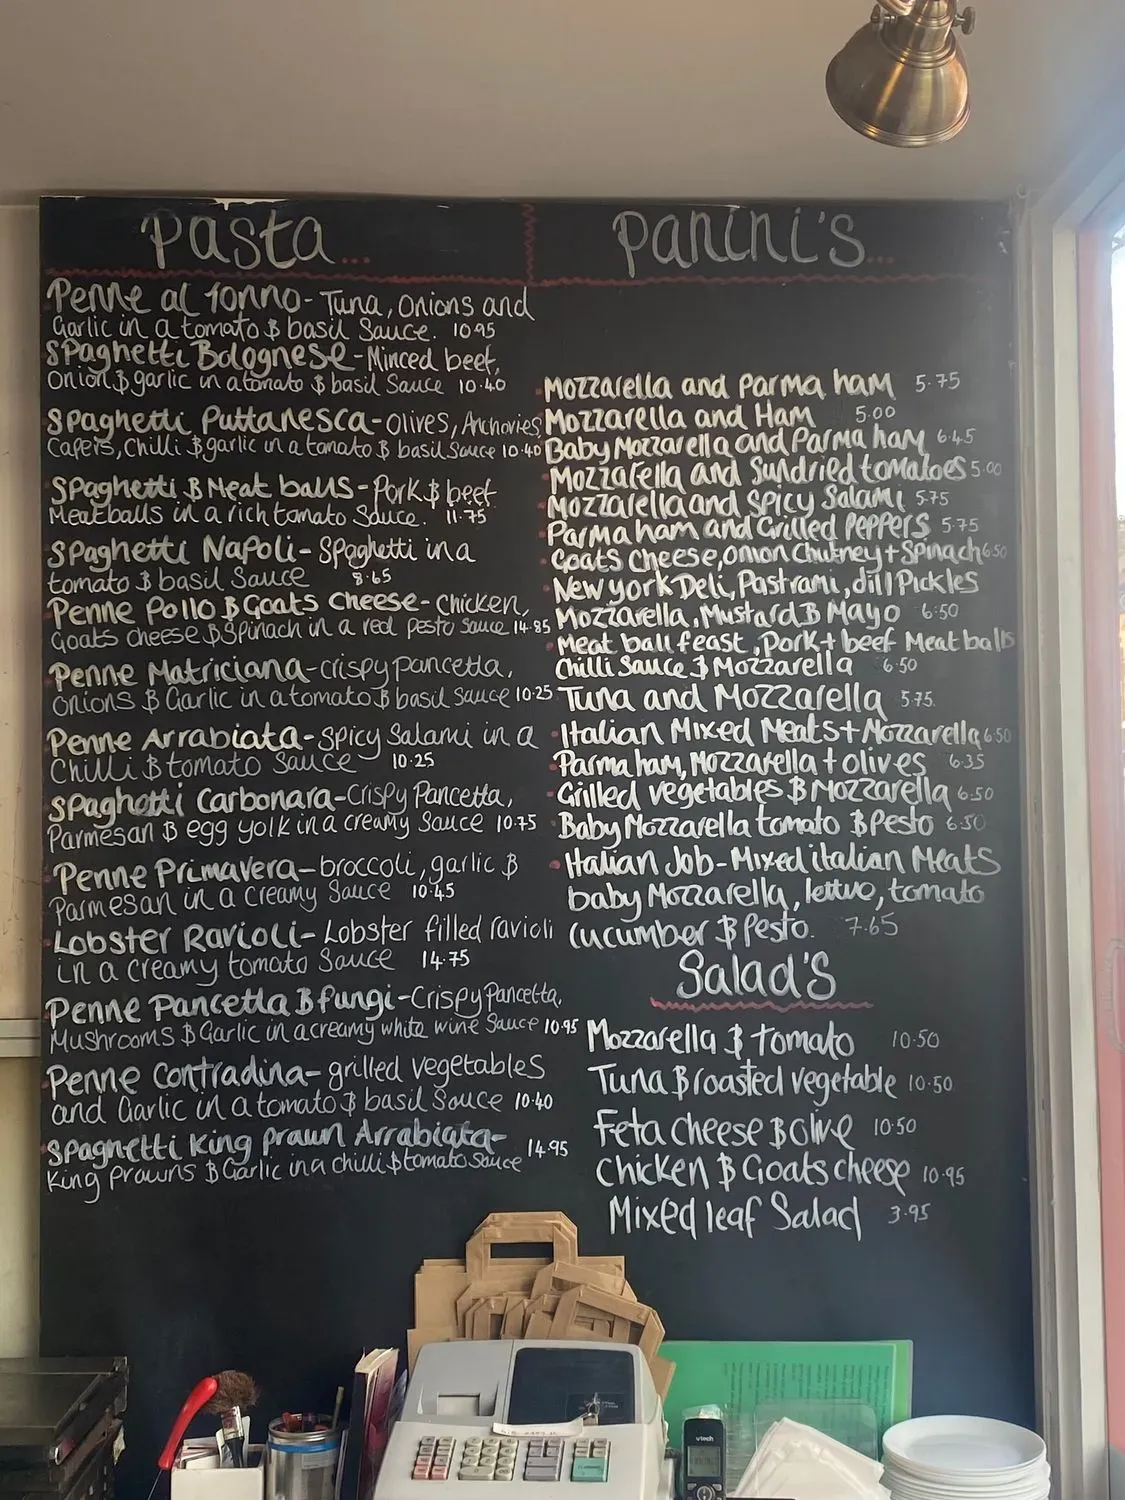 Pasta...
Penne al Tonno- Tuna, Onions and
Garlic in a tomato & basil Sauce. 10.95
Spaghetti Bolognese - Minced beef,
Onion & garlic in a tomato & basil Sauce 10.40
Spaghetti Puttanesca - Olives, Anchovies
Capers, Chilli & garlic in a tomato & basil Sauce 10.40
Spaghetti & Meat balls - Pork & beef
Meatballs in a rich tomato Sauce. 11.75
Spaghetti Napoli - Spaghetti in a
tomato & basil Sauce 8.65
Penne Pollo & Goats Cheese - Chicken,
Goats cheese & Spinach in a red pesto Sauce 14.85
Penne Matriciana - crispy pancetta,
Onions & Garlic in a tomato & basil Sauce 10.25
Penne Arrabiata - Spicy Salami in a
Chilli & tomato Sauce 10.25
Spaghetti Carbonara - Crispy Pancetta,
Parmesan & egg yolk in a creamy Sauce 10.75
Penne Primavera - broccoli, garlic &
Parmesan in a creamy Sauce 10.45
Lobster Ravioli - Lobster filled ravioli
in a creamy tomato Sauce 14.75
Penne Pancetta & fungi - Crispy Pancetta,
Mushrooms & Garlic in a creamy white wine Sauce 10.95
Penne Contradina - grilled vegetables
and Garlic in a tomato & basil Sauce 10.40
Spaghetti King Prawn Arrabiata - 14.95
King Prawns & Garlic in a chilli & tomato Sauce
Panini's...
Mozzarella and Parma ham 5.75
Mozzarella and Ham 5.00
Baby Mozzarella and Parma ham 6.45
Mozzarella and Sundried tomatoes 5.00
Mozzarella and Spicy Salami 5.75
Parma ham and Grilled Peppers 5.75
Goats Cheese, onion Chutney + Spinach 6.50
New york Deli, Pastrami, dill Pickles
Mozzarella, Mustard & Mayo 6.50
Meat ball feast, Pork + beef Meat balls
Chilli Sauce & Mozzarella 6.50
Tuna and Mozzarella 5.75.
Italian Mixed Meats + Mozzarella 6.50
Parma ham, Mozzarella + olives 6.35
Grilled vegetables & Mozzarella 6.50
Baby Mozzarella tomato & Pesto 6.50
Italian Job - Mixed italian Meats
baby Mozzarella, lettue, tomato
cucumber & Pesto. 7.65
Salad's
Mozzarella & tomato 10.50
Tuna & roasted vegetable 10.50
Feta cheese & olive 10.50
Chicken & Goats cheese 10.95
Mixed leaf Salad 3.95
vtech